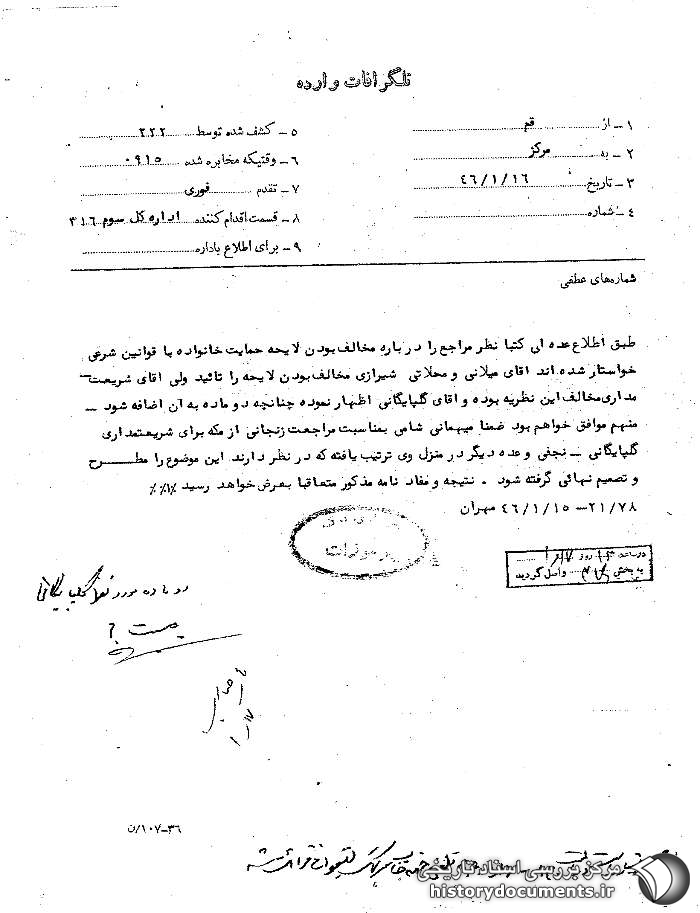 تلگرافات وارده
۱ – از قم
۲ – به مرکز
۳ – تاریخ ۴۶/۱/۱۶
۴ – شماره
۵ – کشف شده توسط ۲۲۲
۶ – وقتیکه مخابره شده ۰۹۱۵
۷ – تقدم فوری
۸ – قسمت اقدام کننده اداره کل سوم ۳۱۶
۹ – برای اطلاع باداره
شماره‌های عطفی
طبق اطلاع عده ای کتبا نظر مراجع را درباره مخالف بودن لایحه حمایت خانواده با قوانین شرعی
خواستار شده اند آقای میلانی و محلاتی شیرازی مخالف بودن لایحه را تائید ولی آقای شریعت–
مداری مخالف این نظریه بوده و آقای گلپایگانی اظهار نموده چنانچه دو ماده به آن اضافه شود –
منهم موافق خواهم بود ضمنا میهمانی شامی بمناسبت مراجعت زنجانی از مکه برای شریعتمداری
گلپایگانی – نجفی و عده دیگر در منزل وی ترتیب یافته که در نظر دارند این موضوع را مطرح
و تصمیم نهائی گرفته شود . نتیجه و مفاد نامه مذکور متعاقبا بعرض خواهد رسید
۲۱/۷۸ – ۴۶/۱/۱۵ مهران
مرموزات
در ساعت روز
به بخش ۳۱۶ واصل گردید
دو ماده مورد نظر گلپایگانی
چیست ؟
۱۰۷–۳۶/ن
مرکز بررسی اسناد تاریخی
historydocuments.ir